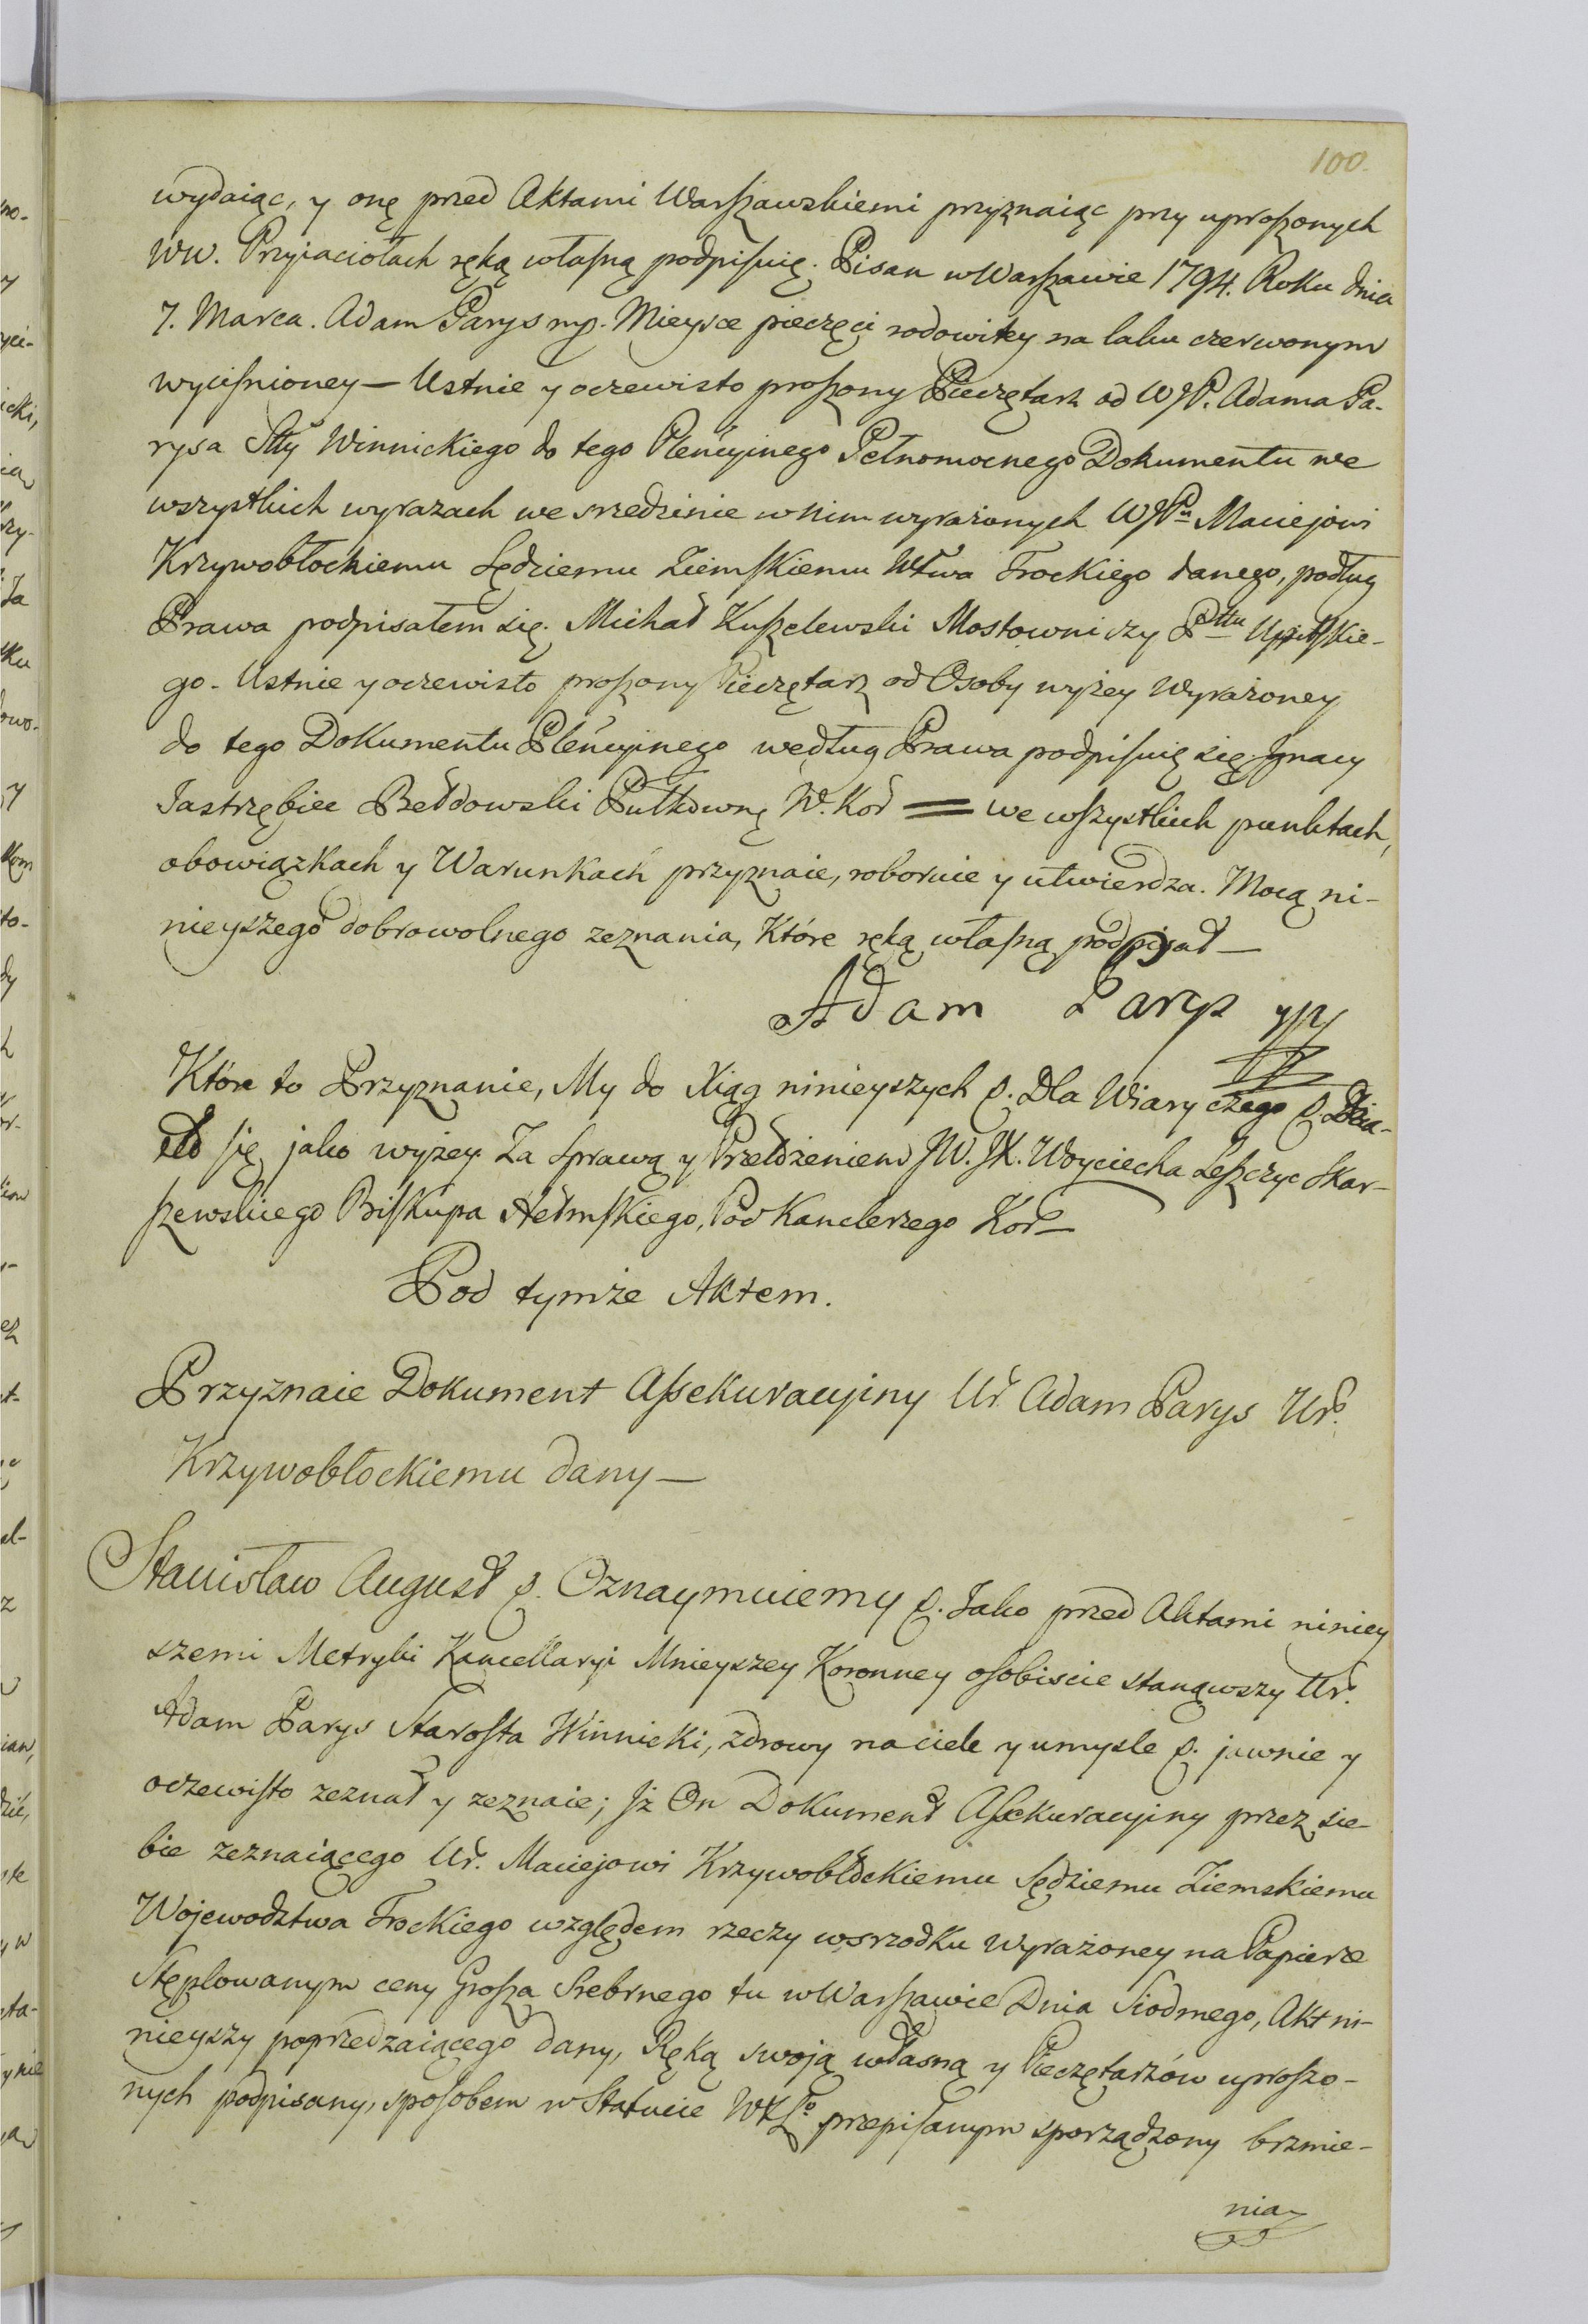 100.
wydaiąc, y onę przed Aktami Warszawskiemi przyznaiąc przy uproszonych
WW. Przyiaciołach ręką własną podpisuię. Pisan w Warszawie 1794. Roku dnia
7. Marca. Adam Parys mp. Mieysce pieczęci rodowitey na laku czerwonym
wycisnioney — Ustnie y oczewisto proszony Pieczętarz od WJP. Adama Pa-
rysa Stty Winnickiego do tego Plencyinego Pełnomocnego Dokumentu we
wszystkich wyrazach we srzedzinie w nim wyrażonych WJPu Maciejowi
Krzywobłockiemu Sędziemu Ziemskiemu Wtwa Trockiego danego, podług
Prawa podpisałem się. Michał Kuszelewski Mostowniczy Pttu Upitskie-
go. Ustnie y oczewisto proszony Pieczętarz od Osoby wyżey Wyrażoney
do tego Dokumentu Plencyinego według Prawa podpisuię się Jgnacy
Jastrzębiec Bełdowski Pułkowng W. Kor = we wszystkich punktach,
obowiązkach y Warunkach przyznaie, roboruie y utwierdza. Mocą ni-
nieyszego dobrowolnego zeznania, Które ręką własną podpisał —
Adam Parys mp
Które to Przyznanie, My do Xiąg ninieyszych p. Dla Wiary czego p. Dzia-
ło się jako wyżey. Za Sprawą y Przełożeniem JW. JX. Woyciecha Leszczyc Skar-
szewskiego Biskupa Hełmskiego, Pod Kanclerzego Kor —
Pod tymże Aktem.
Przyznaie Dokument Assekuracyiny Ur. Adam Parys Ur.
Krzywobłockiemu dany —
Stanisław August p. Oznaymuiemy p. Jako przed Aktami niniey
szemi Metryki Kancellaryi Mnieyszey Koronney osobiscie stanąwszy Ur.
Adam Parys Starosta Winnicki, zdrowy na ciele y umysle p. jawnie y
oczewisto zeznał y zeznaie; Jż On Dokument Assekuracyiny przez sie-
bie zeznaiącego Ur. Maciejowi Krzywobłockiemu Sędziemu Ziemskiemu
Wojewodztwa Trockiego względem rzeczy wsrzodku Wyrażoney na Papierze
Stęplowanym ceny Grosza Srebrnego tu w Warszawie Dnia Siodmego, Akt ni-
nieyszy poprzedzaiącego dany, Ręką swoją własną y Pieczętarzów uproszo-
nych podpisany, sposobem w Statucie WXLo przepisanym sporządzony brzmie-
nia